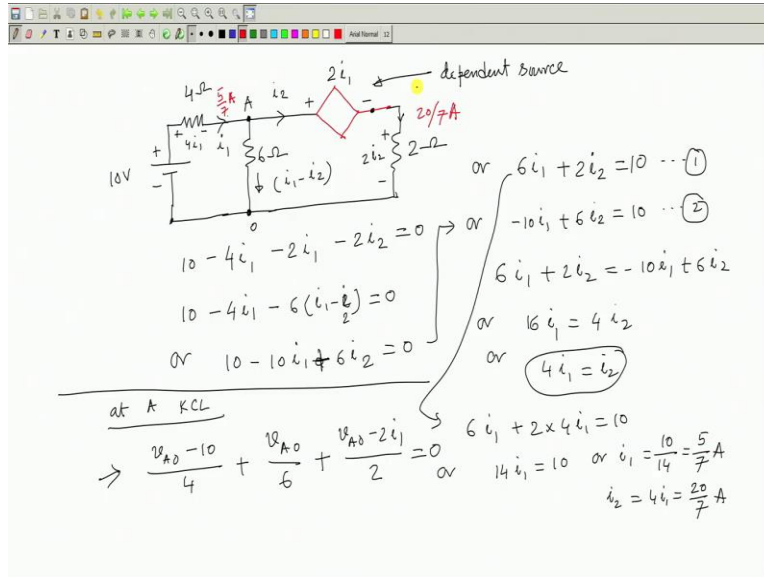 Arial Normal 12
2i₁
dependent source
4Ω
5/7 A
A
i₂
+
-
20/7 A
+ 4i₁ -
i₁
6Ω
+
2i₂
2Ω
-
+
10V
-
(i₁-i₂)
0
10 - 4i₁ - 2i₁ - 2i₂ = 0
10 - 4i₁ - 6(i₁-i₂) = 0
or 10 - 10i₁ + 6i₂ = 0
or 6i₁ + 2i₂ = 10 ... ①
or -10i₁ + 6i₂ = 10 ... ②
6i₁ + 2i₂ = -10i₁ + 6i₂
or 16i₁ = 4i₂
or 4i₁ = i₂
6i₁ + 2×4i₁ = 10
or 14i₁ = 10 or i₁ = 10/14 = 5/7 A
i₂ = 4i₁ = 20/7 A
at A KCL
→ (v_AO - 10)/4 + v_AO/6 + (v_AO - 2i₁)/2 = 0